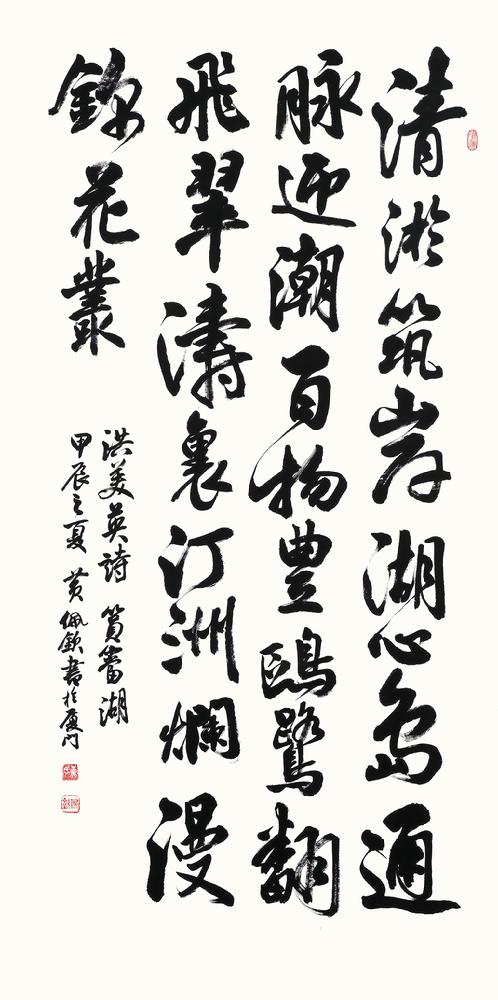 清淤筑岸湖心島通
脉迎潮百物豐鷗鷺翻
飛翠濤裏汀洲爛漫
錦花叢
洪美英詩 篔簹湖
甲辰之夏 黄佩欽書於厦门